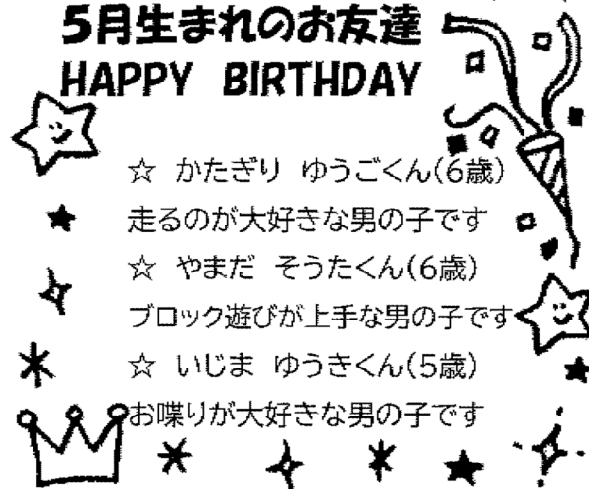 5月生まれのお友達
HAPPY BIRTHDAY
☆ かたぎり ゆうごくん(6歳)
走るのが大好きな男の子です
☆ やまだ そうたくん(6歳)
ブロック遊びが上手な男の子です
☆ いじま ゆうきくん(5歳)
お喋りが大好きな男の子です